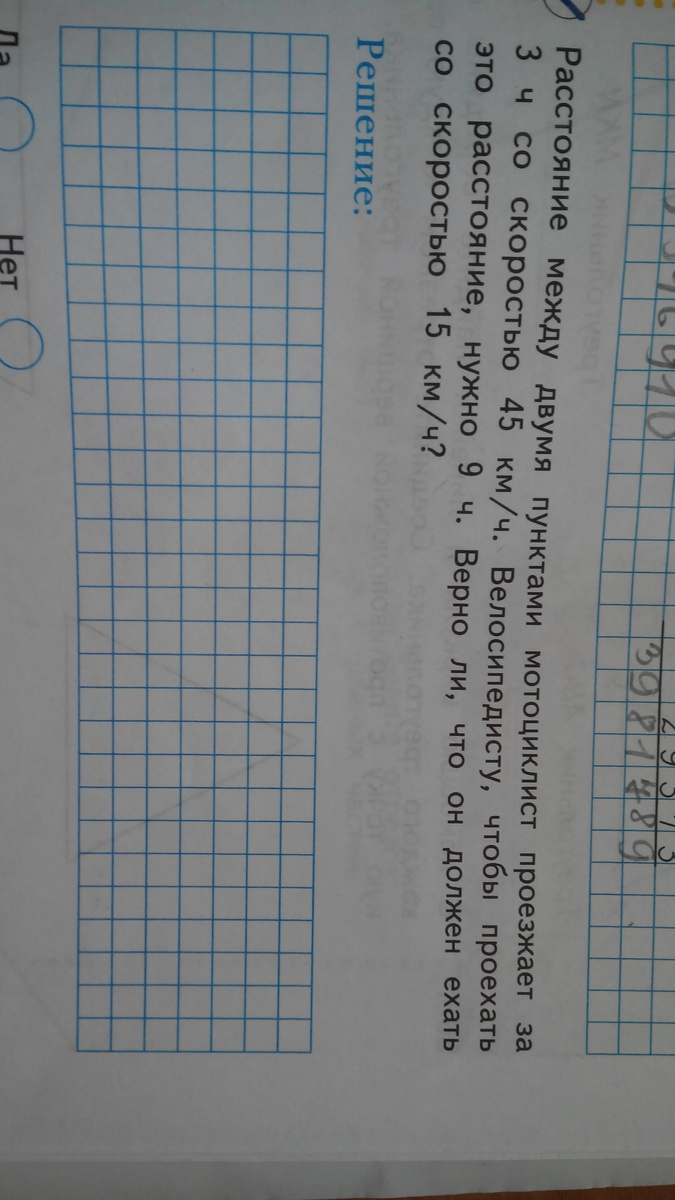 29373
3981489
Расстояние между двумя пунктами мотоциклист проезжает за
3 ч со скоростью 45 км/ч. Велосипедисту, чтобы проехать
это расстояние, нужно 9 ч. Верно ли, что он должен ехать
со скоростью 15 км/ч?
Решение:
Да
Нет